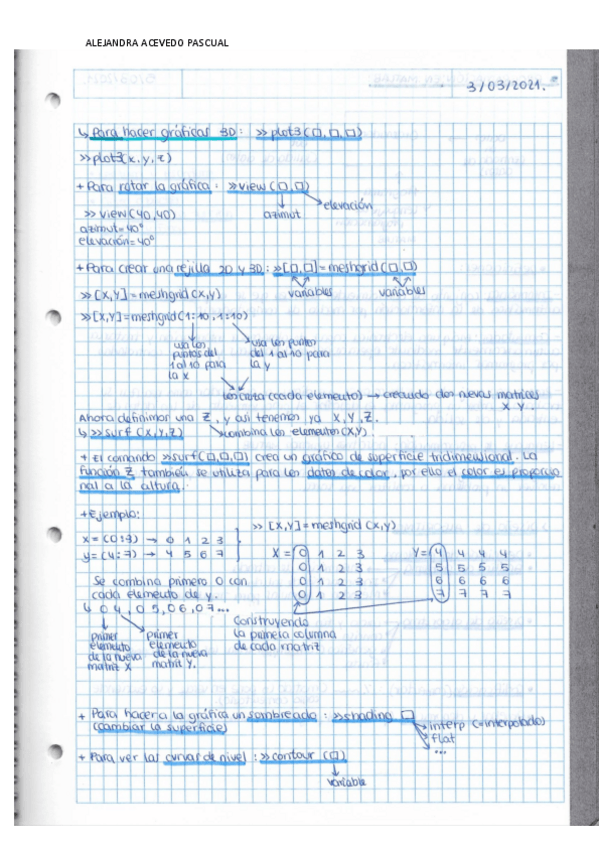 ALEJANDRA ACEVEDO PASCUAL
3/03/2021.
↳ Para hacer gráficas 3D: >> plot3(□,□,□)
>> plot3(x,y,z)
+ Para rotar la gráfica: >> view(□,□)
azimut elevación
>> view(40,40)
azimut=40º
elevación=40º
+ Para crear una rejilla 2D y 3D: >> [□,□]=meshgrid(□,□)
variables variables
>> [X,Y]=meshgrid(x,y)
>> [X,Y]=meshgrid(1:10,1:10)
usa los puntos del 1 al 10 para la x
usa los puntos del 1 al 10 para la y
los cruza (cada elemento) → creando dos nuevas matrices
X Y.
Ahora definimos una Z, y así tenemos ya X,Y,Z.
↳ >> surf(X,Y,Z) combina los elementos (X,Y)
+ El comando >> surf(□,□,□) crea un gráfico de superficie tridimensional. La
función Z, también se utiliza para los datos de color, por ello el color es proporcio
nal a la altura.
+ Ejemplo:
x=(0:3) → 0 1 2 3
y=(4:7) → 4 5 6 7
>> [X,Y]=meshgrid(x,y)
X = 0 1 2 3 Y= 4 4 4 4
0 1 2 3 5 5 5 5
0 1 2 3 6 6 6 6
0 1 2 3 7 7 7 7
Se combina primero 0 con
cada elemento de y.
↳ 04,05,06,07...
primer elemento de la nueva matriz X
primer elemento de la nueva matriz Y.
Construyendo
la primera columna
de cada matriz
+ Para hacer a la gráfica un sombreado: >> shading □
(cambiar la superficie)
interp (=interpolado)
flat
...
+ Para ver las curvas de nivel: >> contour(□)
variable